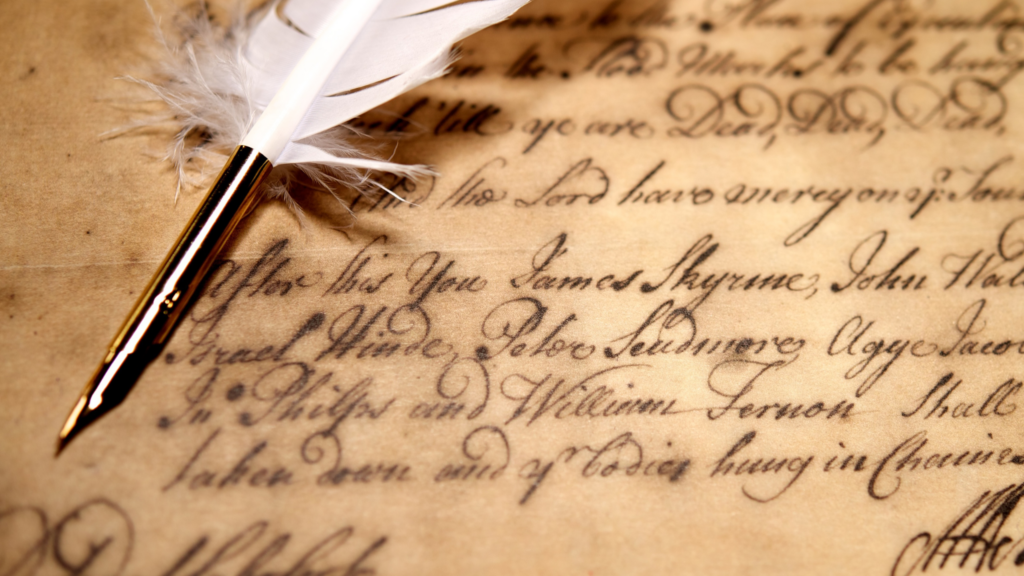 the
in the Flood Marks to be hung
till ye are Dead, Dead, Dead,
And the Lord have mercy on yr: Soul
After this You James Skyrme, John Wal
Israel Hinde, Peter Scudmore Agge Jaco
Jno Philps and William Fernon Shall
taken down and yr bodies hung in Chaines